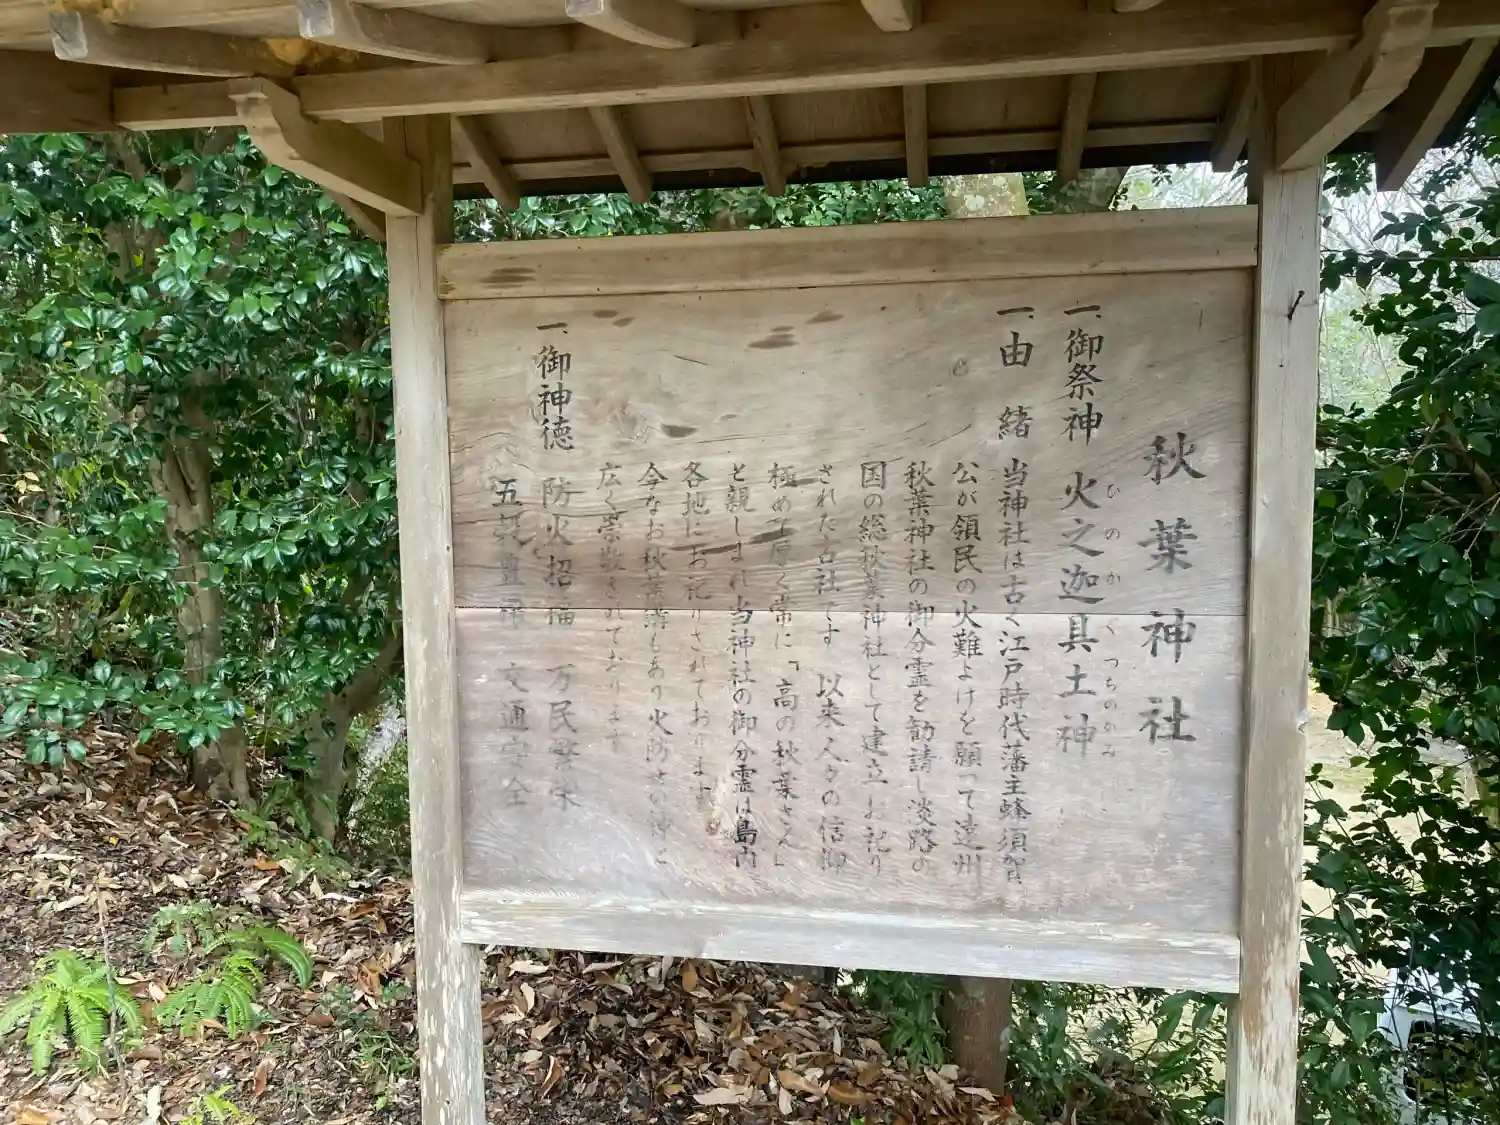 秋葉神社
一、御祭神 火之迦具土神
ひのかぐつちのかみ
一、由緒 当神社は古く江戸時代藩主蜂須賀
公が領民の火難よけを願って遠州
秋葉神社の御分霊を勧請し淡路の
国の総秋葉神社として建立お祀り
された古社です 以来人々の信仰
極めて厚く常に「高の秋葉さん」
と親しまれ当神社の御分霊は島内
各地にお祀りされております
今なお秋葉講もあり火防せの神と
広く崇敬されております
一、御神徳 防火招福 万民繁栄
五穀豊穣 交通安全